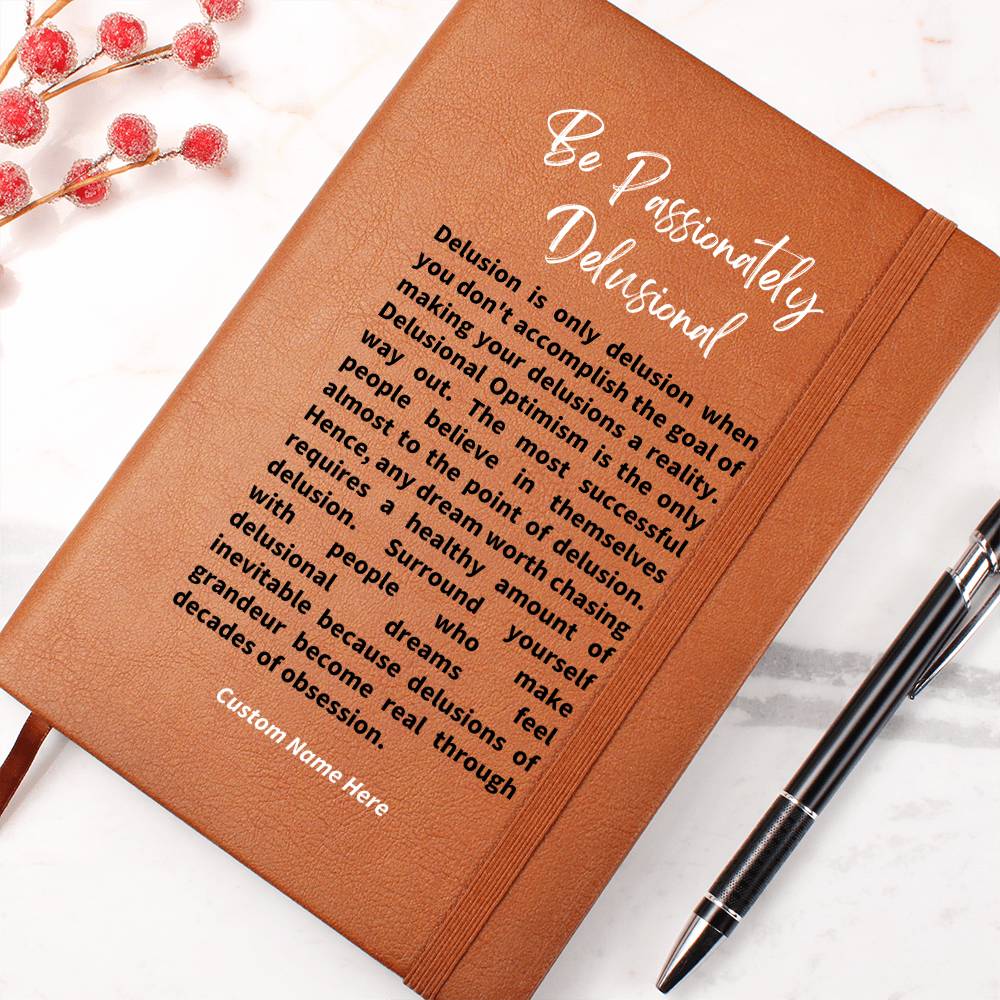 Be Passionately
Delusional
Delusion is only delusion when
you don't accomplish the goal of
making your delusions a reality.
Delusional Optimism is the only
way out. The most successful
people believe in themselves
almost to the point of delusion.
Hence, any dream worth chasing
requires a healthy amount of
delusion. Surround yourself
with people who make
delusional dreams feel
inevitable because delusions of
grandeur become real through
decades of obsession.
Custom Name Here